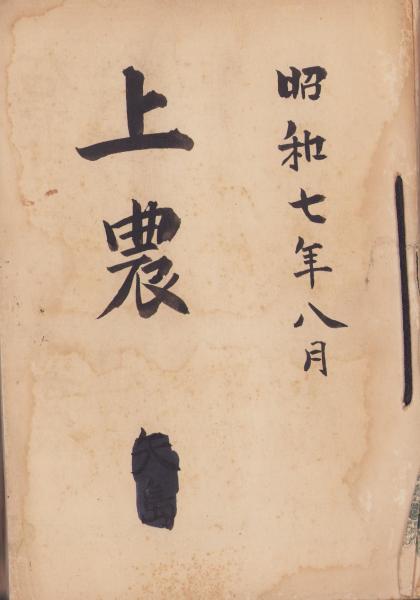 昭和七年八月
上農
矢島